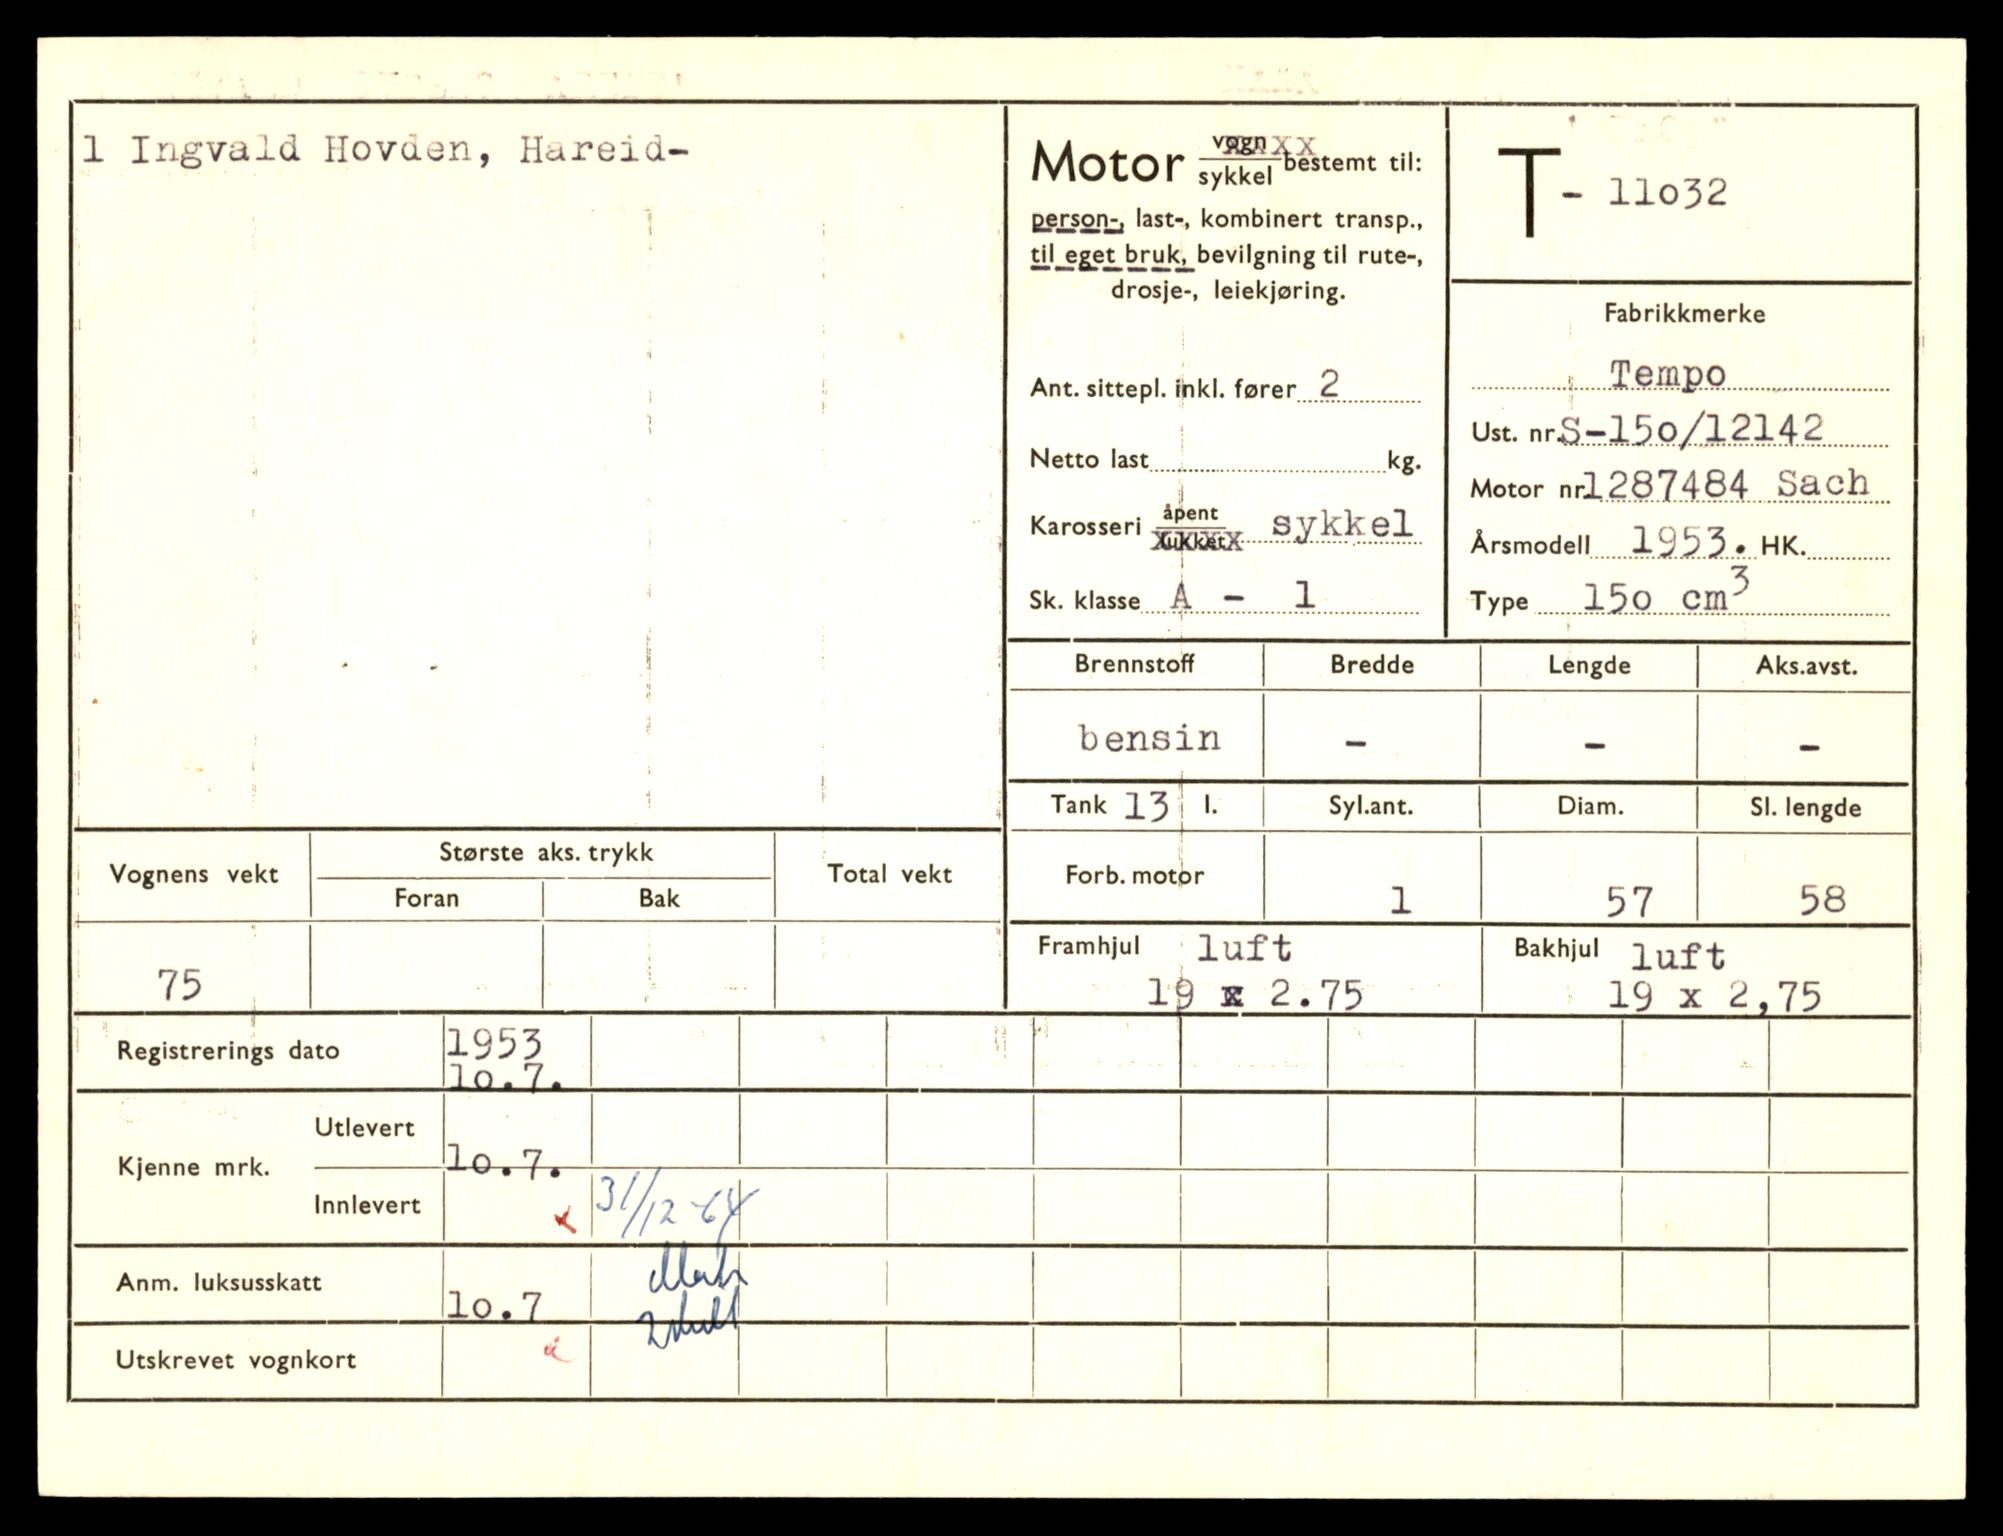 1 Ingvald Hovden, Hareid-
Motor vogn xxxx sykkel bestemt til:
person-, last-, kombinert transp.,
til eget bruk, bevilgning til rute-,
drosje-, leiekjøring.
Ant. sittepl. inkl. fører 2
Netto last kg.
Karosseri åpent lukket xxxx sykkel
Sk. klasse A - 1
T - 11o32
Fabrikkmerke
Tempo
Ust. nr. S-15o/12142
Motor nr. 1287484 Sach
Årsmodell 1953. HK.
Type 15o cm3
Brennstoff Bredde Lengde Aks.avst.
bensin - - -
Tank 13 l. Syl.ant. Diam. Sl. lengde
Forb. motor 1 57 58
Framhjul luft Bakhjul luft
19 x 2.75 19 x 2,75
Vognens vekt Største aks. trykk Total vekt
Foran Bak
75
Registrerings dato 1953
1o.7.
Kjenne mrk. Utlevert 1o.7.
Innlevert x 31/12-64
Anm. luksusskatt 1o.7
Utskrevet vognkort